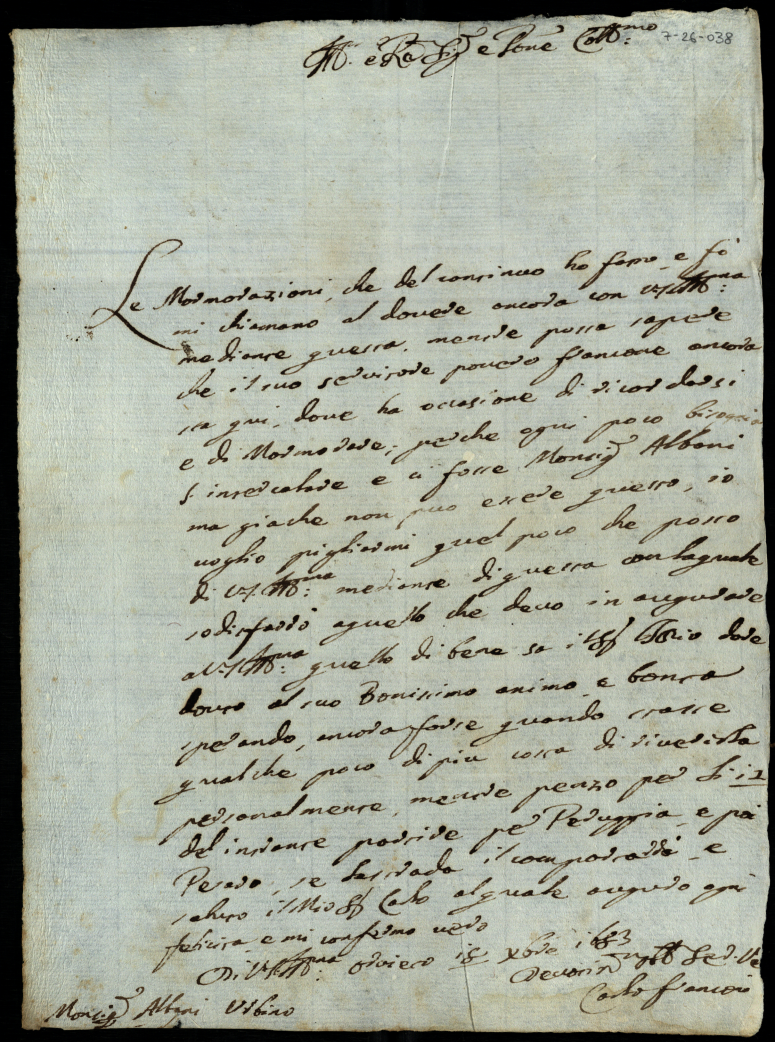 7-26-038
Ill. e R. Sig. e Pone Coll.mo
Le Mormorazioni, che del continuo ho fatto e fo
mi chiamano al dovere ancora con V.S. Ill.ma
mediante questa, mentre possa sapere
che il suo servitore povero francone ancora
sta qui, dove ha occasione di ricordarsi
e di Mormorare, perche ogni poco bisogna
s'intercalare e ci fosse Monsig. Albani
ma giache non puo essere questo, io
voglio pigliarmi quel poco che posso
di V.S. Ill.ma: mediante di questa con laquale
sodisfarrò aquello che devo in augurare
a V.S. Ill.ma: quello di bene sa il Sig. Iddio dare
dovuto al suo Bonissimo animo e bontà
sperando, ancora forse quando stasse
qualche poco di piu costa di riverirla
personalmente, mentre penzo per li 12
del instante partire per Peruggia e poi
Pesaro, se lastrada il comportarrà e
saluto il Mio Sig. Carlo alquale auguro ogni
felicita e mi confermo vero
Di V.S. Ill.ma: orvieto 18 Xbre 1683
Devotis. Ser. Ve
Carlo
Monsig. Albani Urbino